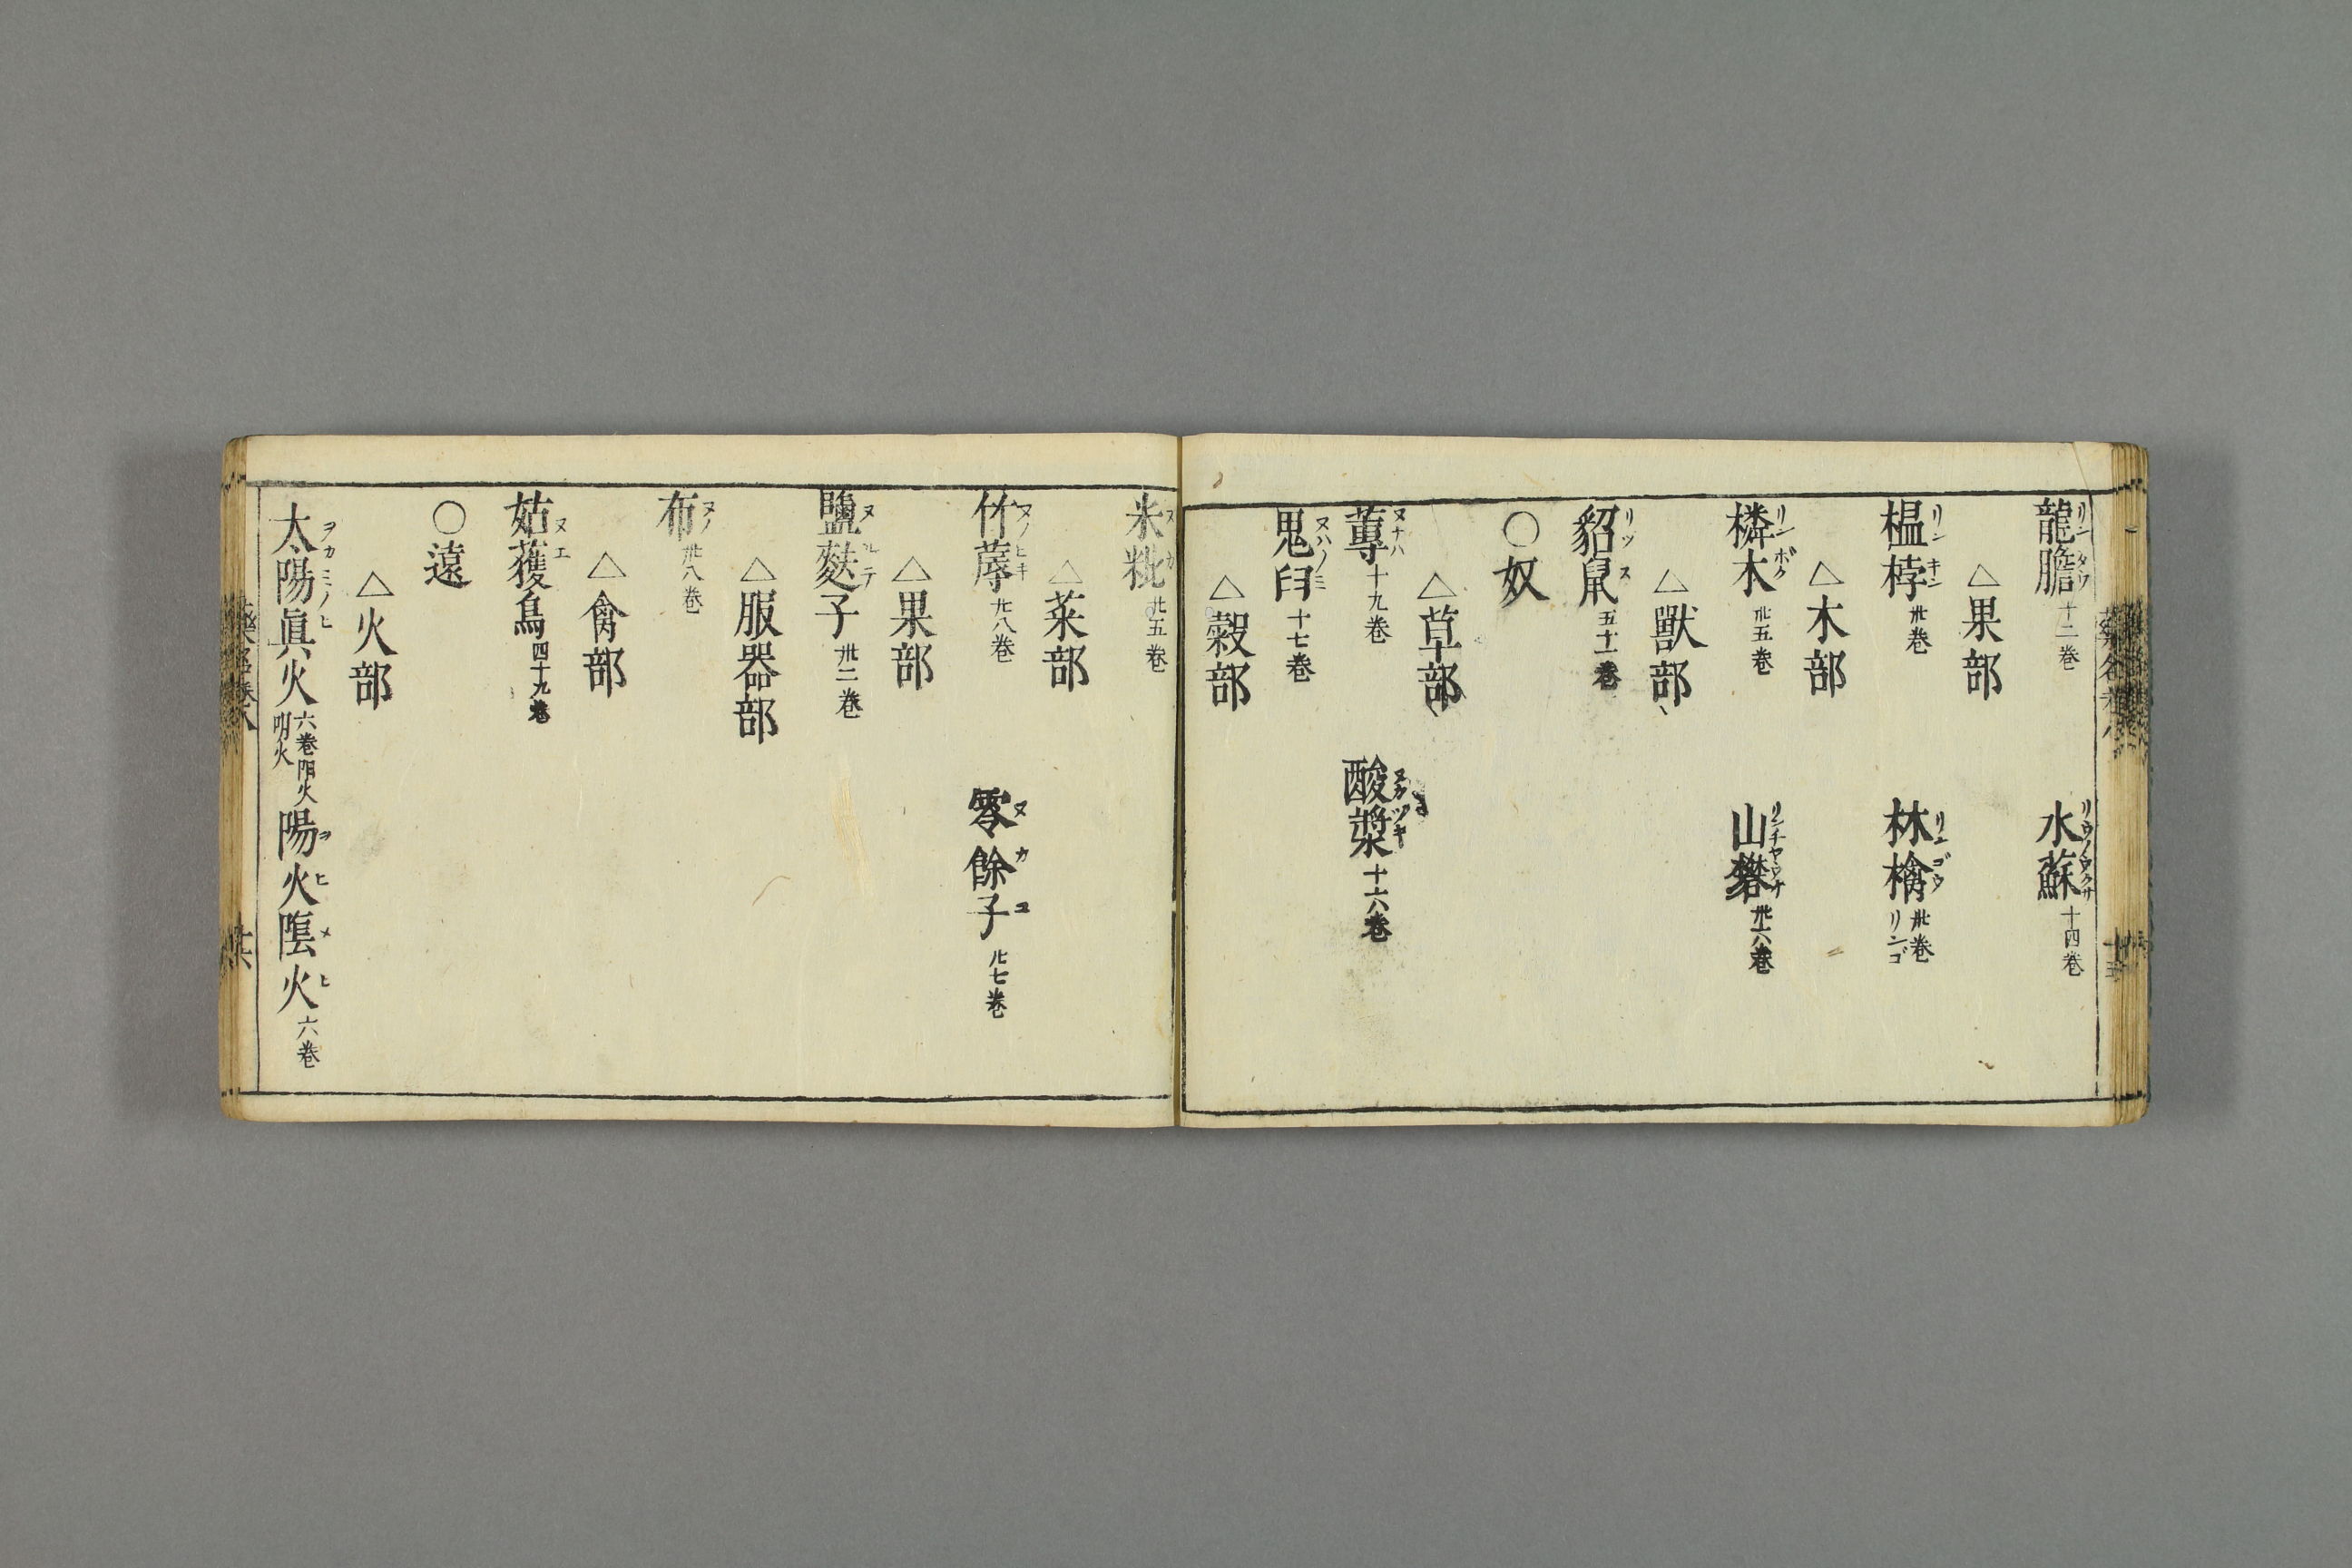 龍膽 リンダウ 十二巻 水蘇 リウノウクサ 十四巻
△果部
榲桲 リンキン 卅巻 林檎 リンゴウ 卅巻 リンゴ
△木部
橉木 リンボク 卅五巻 山礬 リンチヤウケ 卅六巻
△獸部
貂鼠 リツス 五十一巻
○奴
△草部
蓴 ヌナハ 十九巻 酸漿 ヌカツキ 十六巻
鬼臼 ヌハノミ 十七巻
△穀部
米粃 ヌカ 廿五巻
△菜部
竹蓐 ヌノヒキ 廿八巻 零餘子 ヌカコ 廿七巻
△果部
鹽麩子 ヌルテ 卅二巻
△服器部
布 ヌノ 卅八巻
△禽部
姑蒦鳥 ヌエ 四十九巻
○遠
△火部
太陽眞火 ヲカミノヒ 六巻 陽火 明火 陽火陰火 ヲヒメヒ 六巻